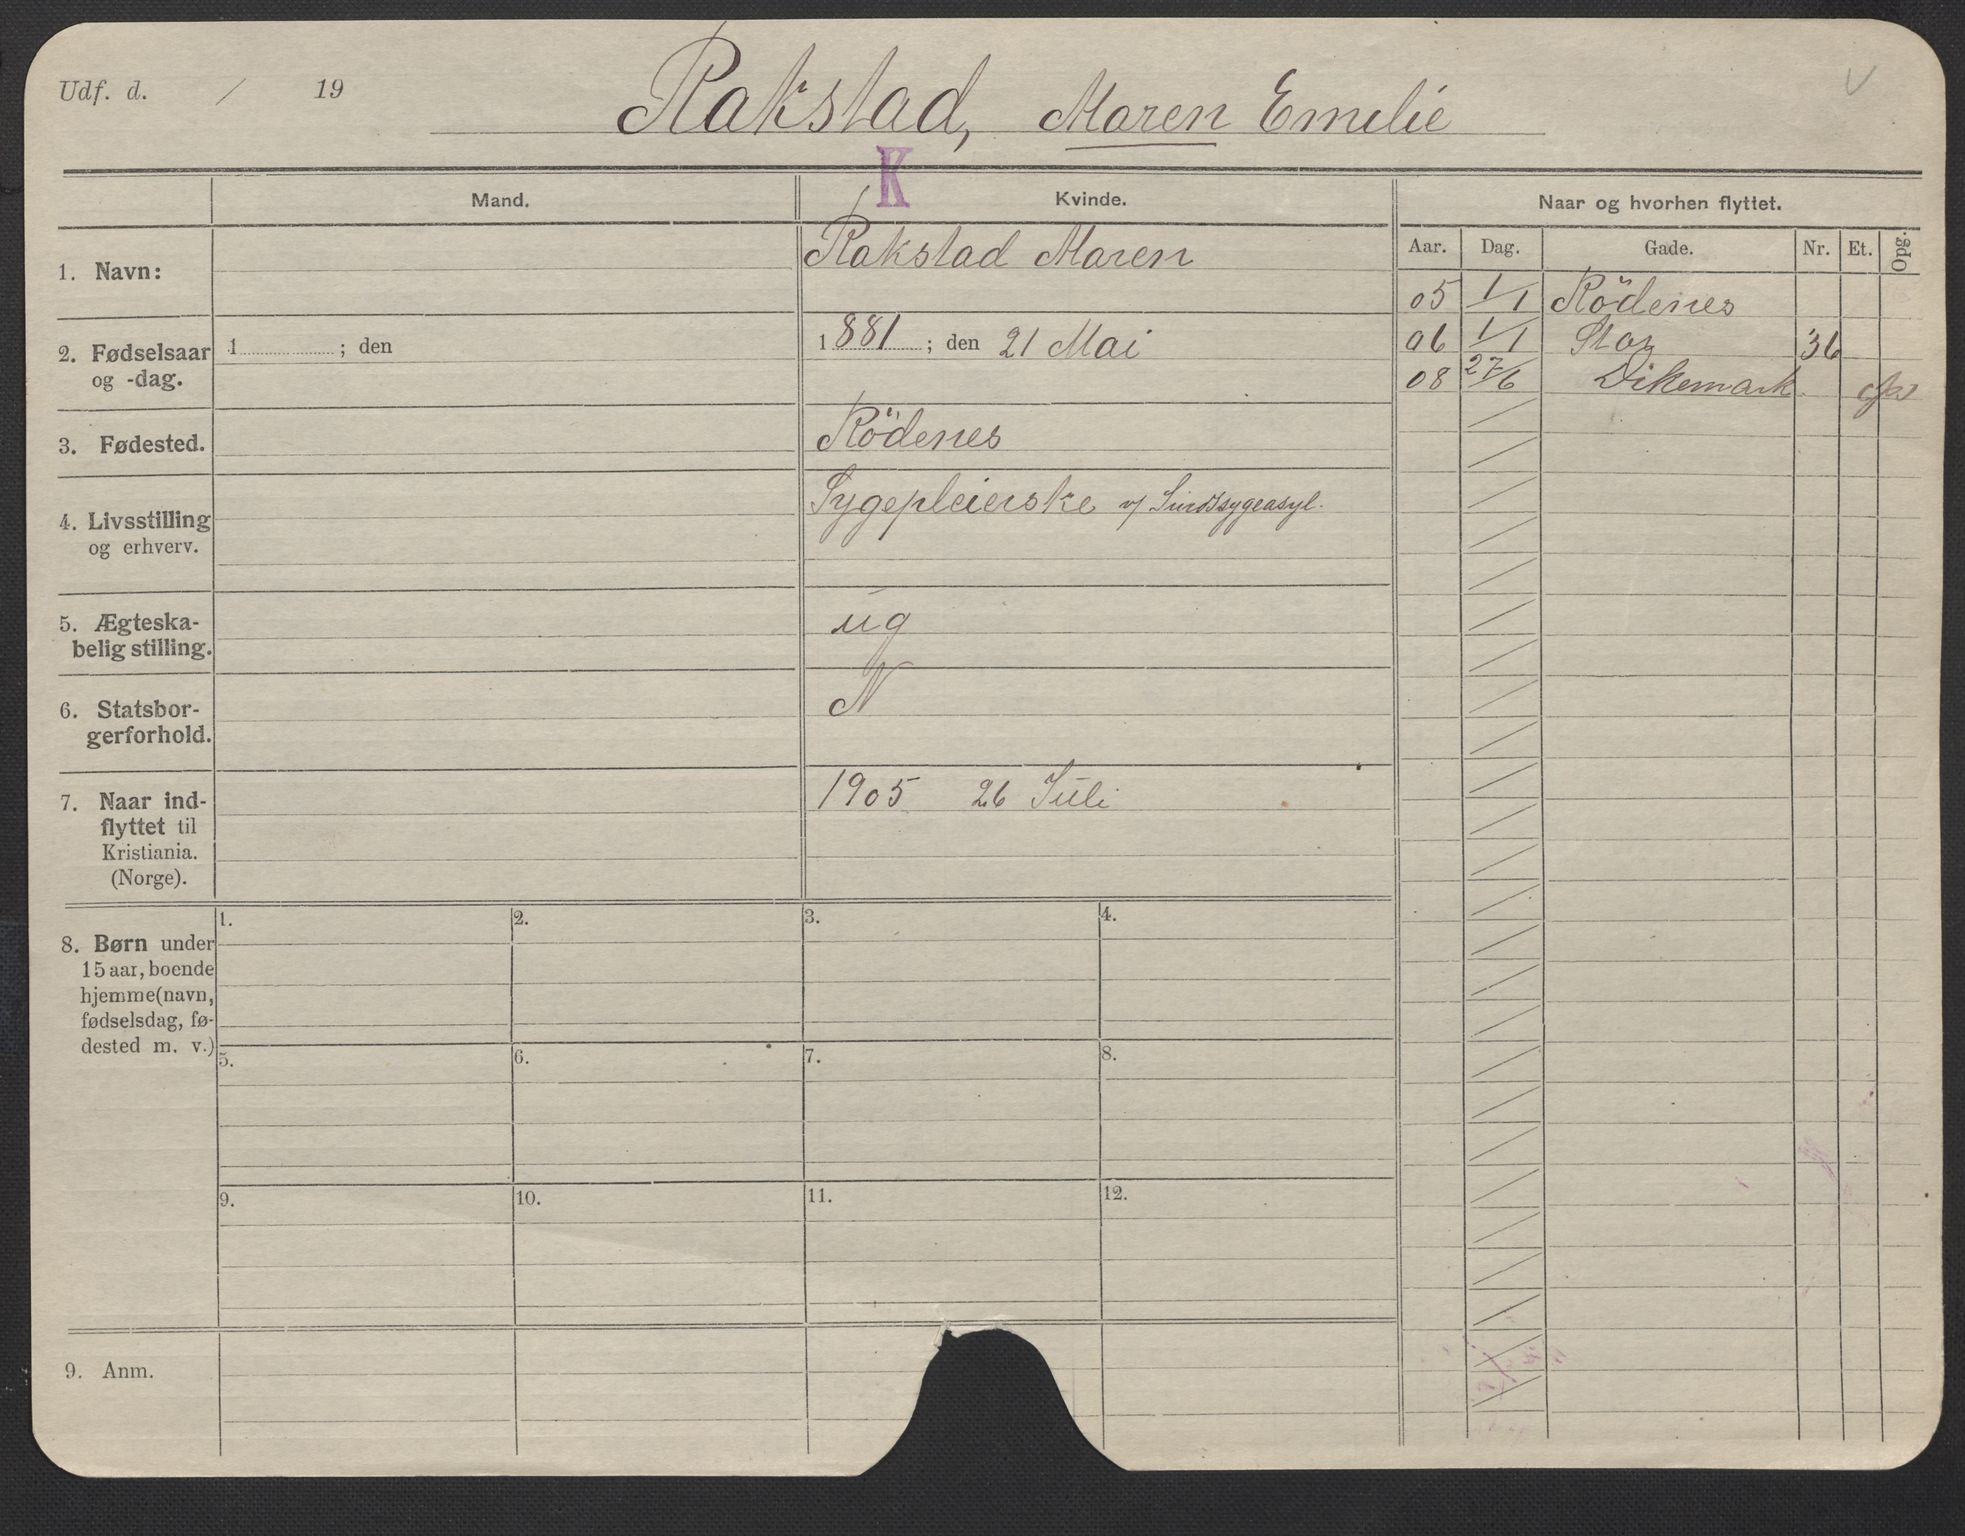 Udf. d. / 19
Rakstad, Maren Emilie
V
K
Mand.
Kvinde.
Naar og hvorhen flyttet.
Aar. Dag. Gade. Nr. Et. Opg.
1. Navn:
Rakstad Maren
05 1/1 Rödenes
06 1/1 Stor 36
08 27/6 Dikemark
2. Fødselsaar
og -dag.
1 ; den
1881 ; den 21 Mai
3. Fødested.
Rödenes
4. Livsstilling
og erhverv.
Sygepleierske v/ Sindssygeasyl.
5. Ægteska-
belig stilling.
ug
6. Statsbor-
gerforhold.
N
7. Naar ind-
flyttet til
Kristiania.
(Norge).
1905 26 Juli
8. Børn under
15 aar, boende
hjemme(navn,
fødselsdag, fø-
dested m. v.)
1. 2. 3. 4.
5. 6. 7. 8.
9. 10. 11. 12.
9. Anm.